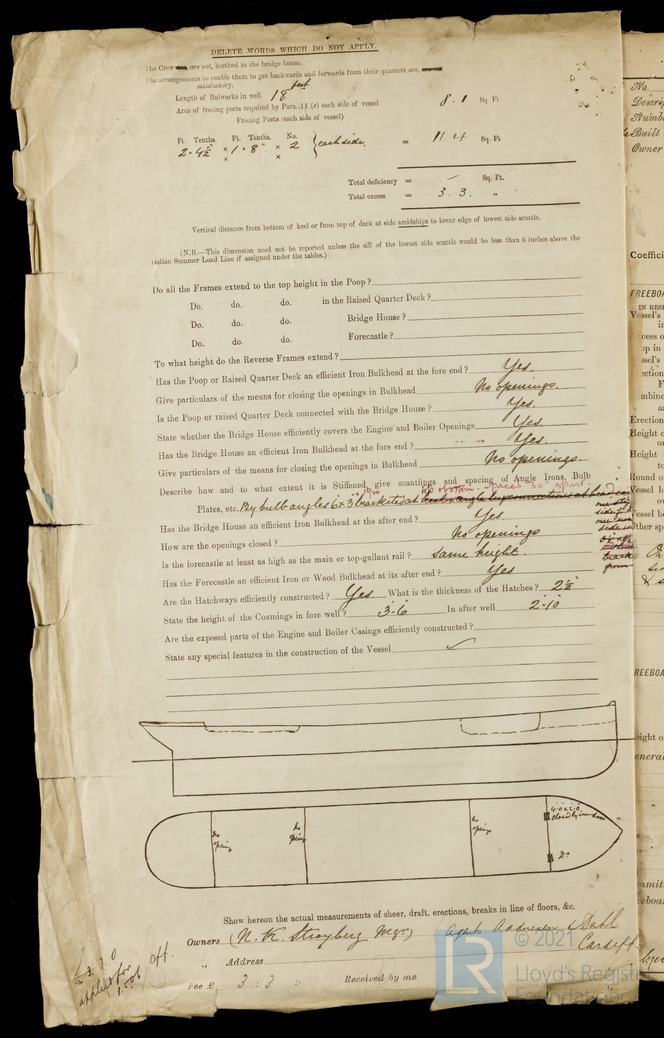 DELETE WORDS WHICH DO NOT APPLY.
The Crew are, are not, berthed in the bridge house.
The arrangements to enable them to get backwards and forwards from their quarters are,
satisfactory.
Length of Bulwarks in well 18 feet
Area of freeing ports required by Para. 11 (e) each side of vessel 8.1 Sq Ft
Freeing Ports (each side of vessel)
Ft. Tenths. Ft. Tenths. No.
2.4½ × 1.8 × 2 } each side. = 11.4 Sq. Ft.
× ×
Total deficiency = Sq. Ft.
Total excess = 3.3. "
Vertical distance from bottom of keel or from top of deck at side amidships to lower edge of lowest side scuttle.
(N.B.—This dimension need not be reported unless the sill of the lowest side scuttle would be less than 6 inches above the
Indian Summer Load Line if assigned under the tables.)
Do all the Frames extend to the top height in the Poop?
Do. do. do. in the Raised Quarter Deck?
Do. do. do. Bridge House?
Do. do. do. Forecastle?
To what height do the Reverse Frames extend?
Has the Poop or Raised Quarter Deck an efficient Iron Bulkhead at the fore end? Yes.
Give particulars of the means for closing the openings in Bulkhead No openings.
Is the Poop or raised Quarter Deck connected with the Bridge House? Yes.
State whether the Bridge House efficiently covers the Engine and Boiler Openings Yes.
Has the Bridge House an efficient Iron Bulkhead at the fore end? Yes.
Give particulars of the means for closing the openings in Bulkhead No openings
Describe how and to what extent it is Stiffened, give scantlings and spacing of Angle Irons, Bulb
bottom spaced 30 apart.
Plates, etc. By bulb angles 6 x 3 bracketed at
Has the Bridge House an efficient Iron Bulkhead at the after end? Yes.
How are the openings closed? No openings
Is the forecastle at least as high as the main or top-gallant rail? same height.
Has the Forecastle an efficient Iron or Wood Bulkhead at its after end? Yes
Are the Hatchways efficiently constructed? Yes. What is the thickness of the Hatches? 2½
State the height of the Coamings in fore well? 3-6 In after well 2-10
Are the exposed parts of the Engine and Boiler Casings efficiently constructed?
State any special features in the construction of the Vessel
No opening
No opening
No opening
4.0 x 2.0
closed by iron door
Do
Show hereon the actual measurements of sheer, draft, erections, breaks in line of floors, &c.
Owners (N. K. Stroyberg Mgr) Agents Andresen & Dahl
Cardiff
" Address
Fee £ 3 : 3 : Received by me
£3.3.0
applied for
off.
© 2021
LR
Lloyd's Register
Foundation
No.
Built
Owner
Coeffici
FREEBOA
Vessel's